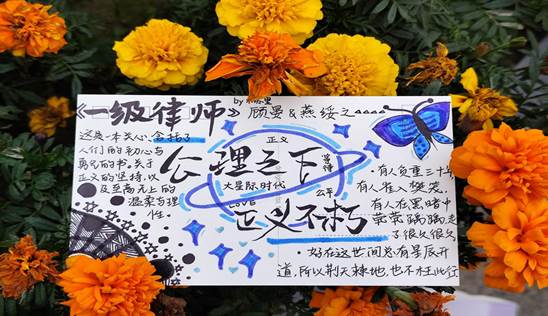 《一级律师》
by 木苏里
顾晏&燕绥之
这是一本关心,含括了
人们的初心与
勇气的书。关于
正义的坚持,以
及至高无上的
温柔与理
性。
正义
公理之下
大星际时代
公平
LOVE
正义不朽
·有人负重三十年
有人 入樊笼
有人在黑暗中
走
了很久很久
·好在这世间总有星辰开
道,所以荆天棘地,也不枉此行